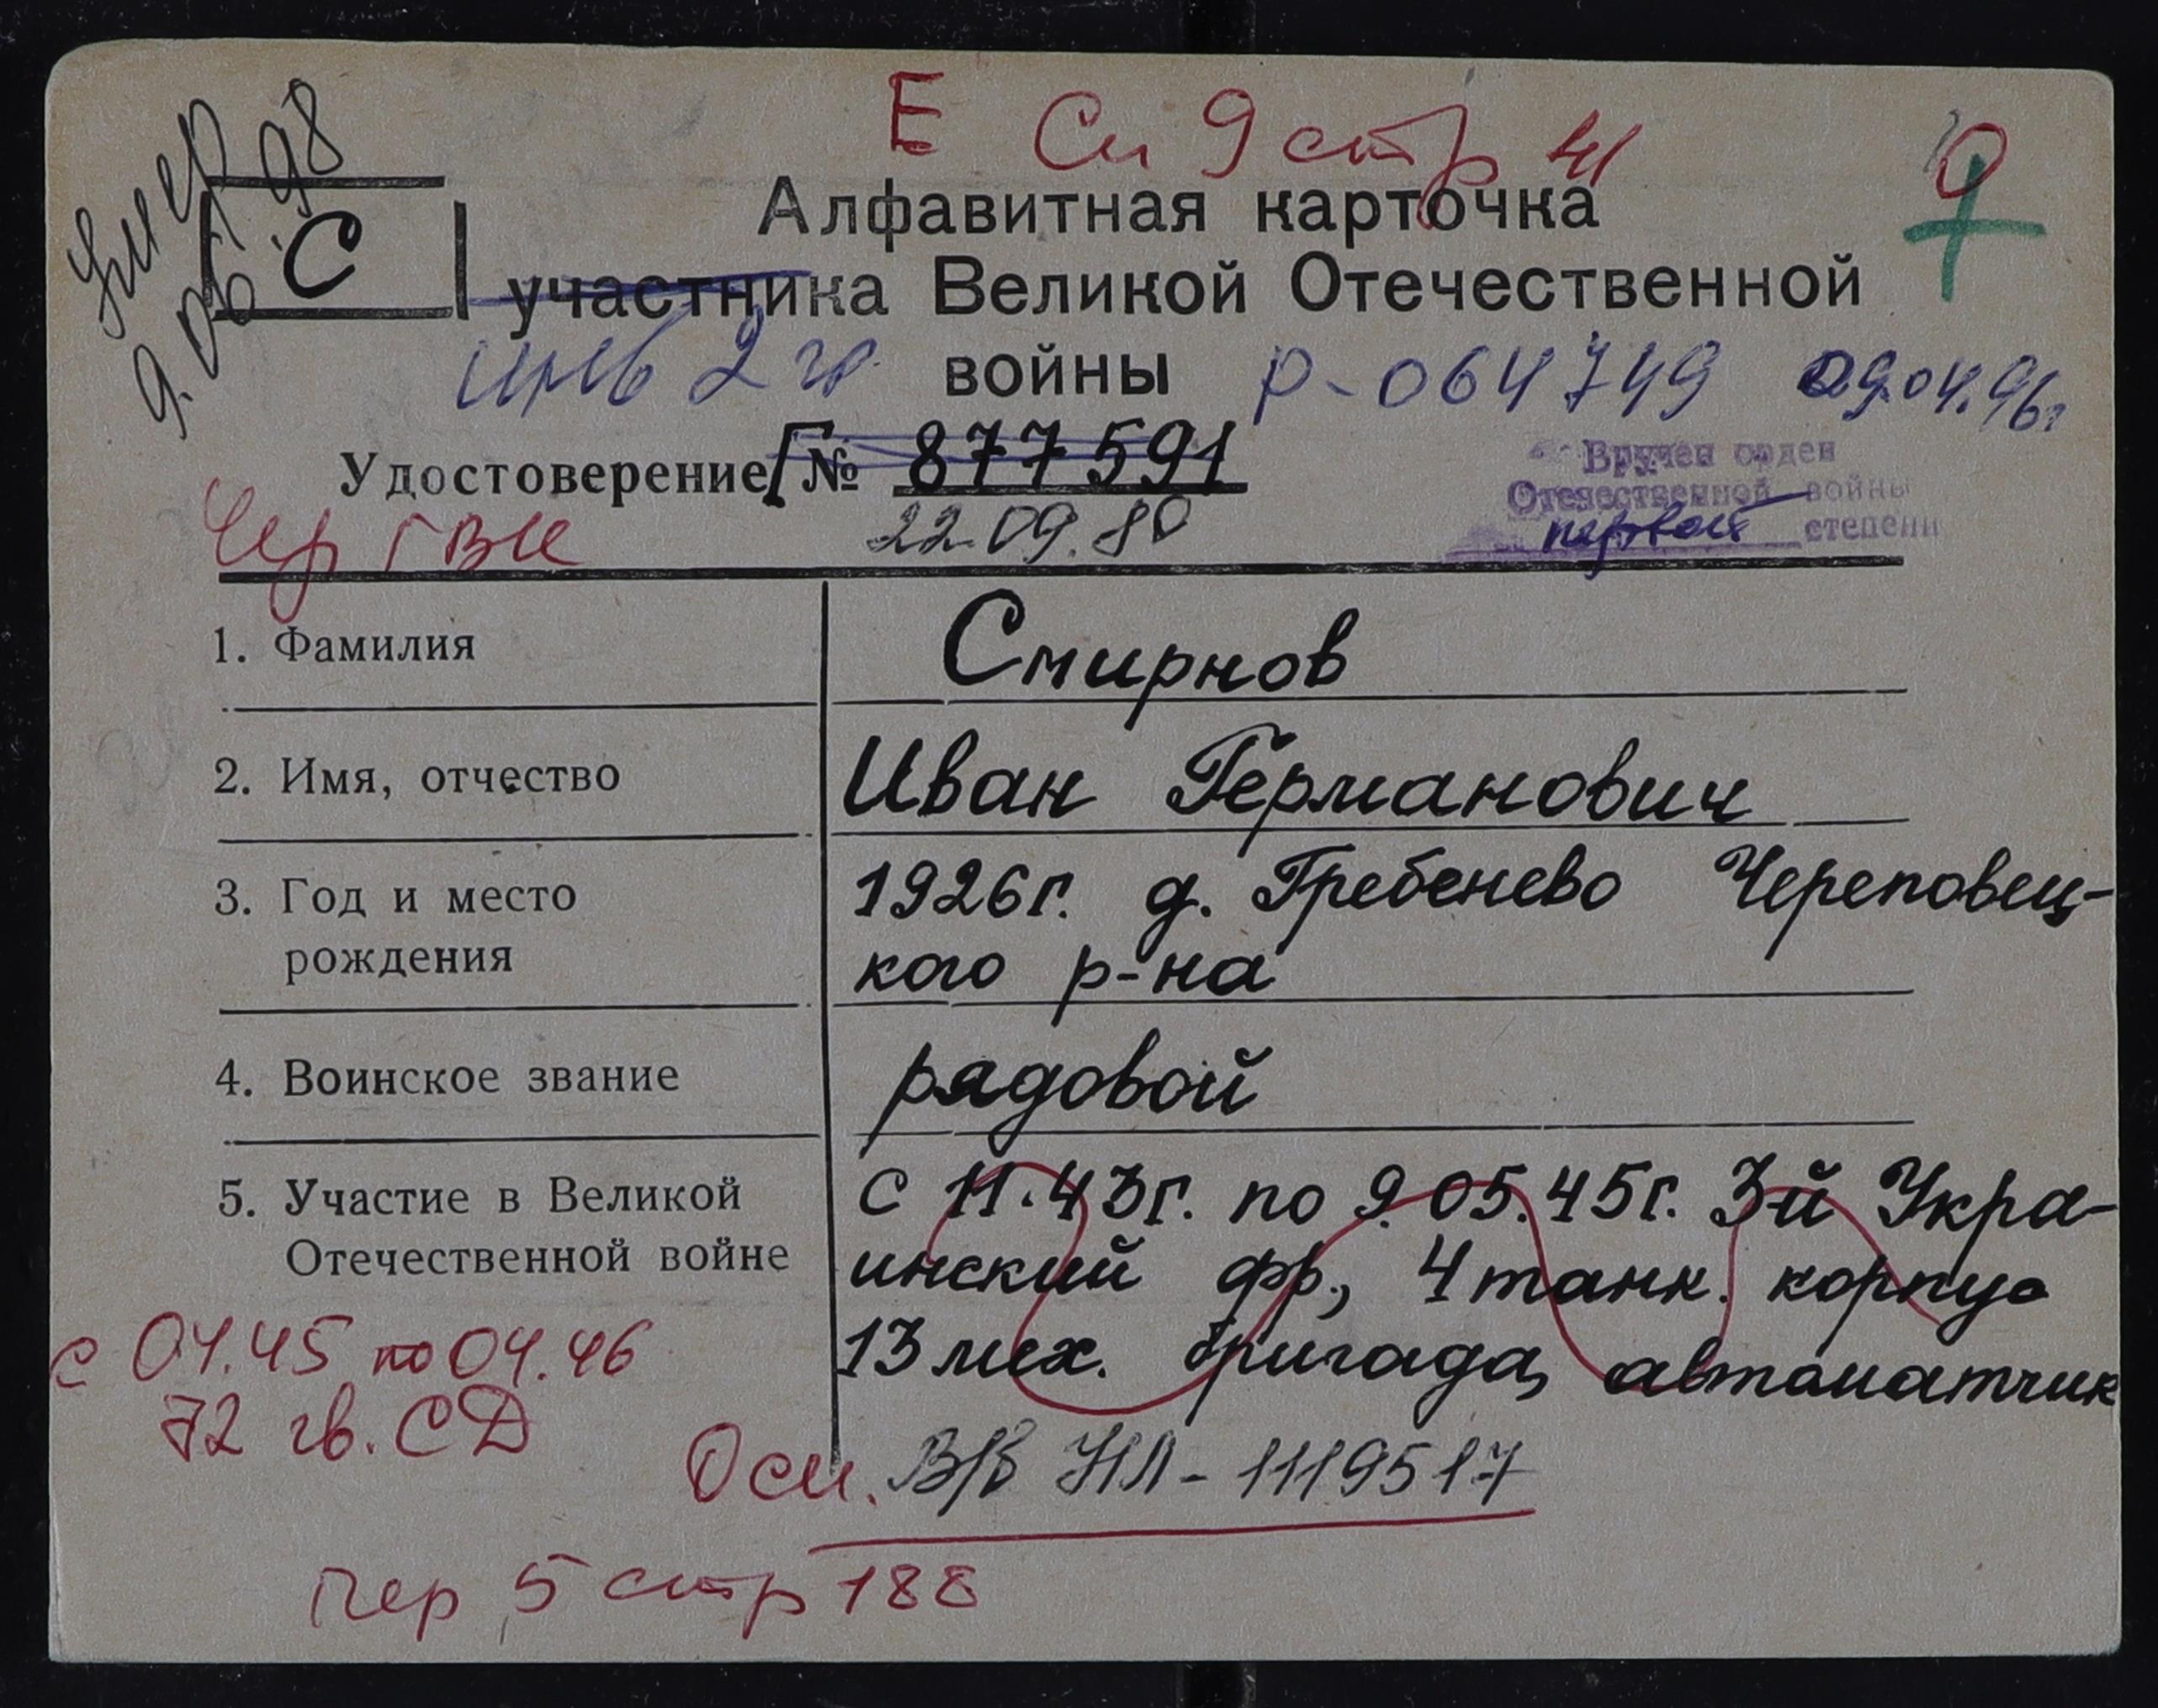 Е Сп 9 стр 41
О
умер
9.06.98
С
Алфавитная карточка
участника Великой Отечественной
инв 2 гр. войны Р-064749 09.04.96г
Удостоверение Г № 877591
22.09.80
Вручен орден
Отечественной войны
первой степени
Чер ГВК
1. Фамилия
Смирнов
2. Имя, отчество
Иван Германович
3. Год и место
рождения
1926г. д. Гребенево Череповец-
кого р-на
4. Воинское звание
рядовой
5. Участие в Великой
Отечественной войне
с 11.43г. по 9.05.45г. 3-й Укра-
инский фр., 4 танк. корпус
13 мех. бригада, автоматчик
с 04.45 по 04.46
72 гв. СД
Осн. В/б НЛ-1119517
Пер 5 стр 188